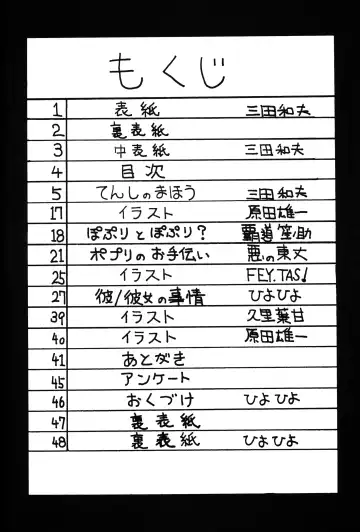 もくじ
1 表紙 三田和夫
2 裏表紙
3 中表紙 三田和夫
4 目次
5 てんしのまほう 三田和夫
17 イラスト 原田雄一
18 ぽぷりとぽぷり? 覇道笙助
21 ポプリのお手伝い 悪の東丈
25 イラスト FEY.TAS!
27 彼/彼女の事情 ひよひよ
39 イラスト 久里葉甘
40 イラスト 原田雄一
41 あとがき
45 アンケート
46 おくづけ ひよひよ
47 裏表紙
48 裏表紙 ひよひよ